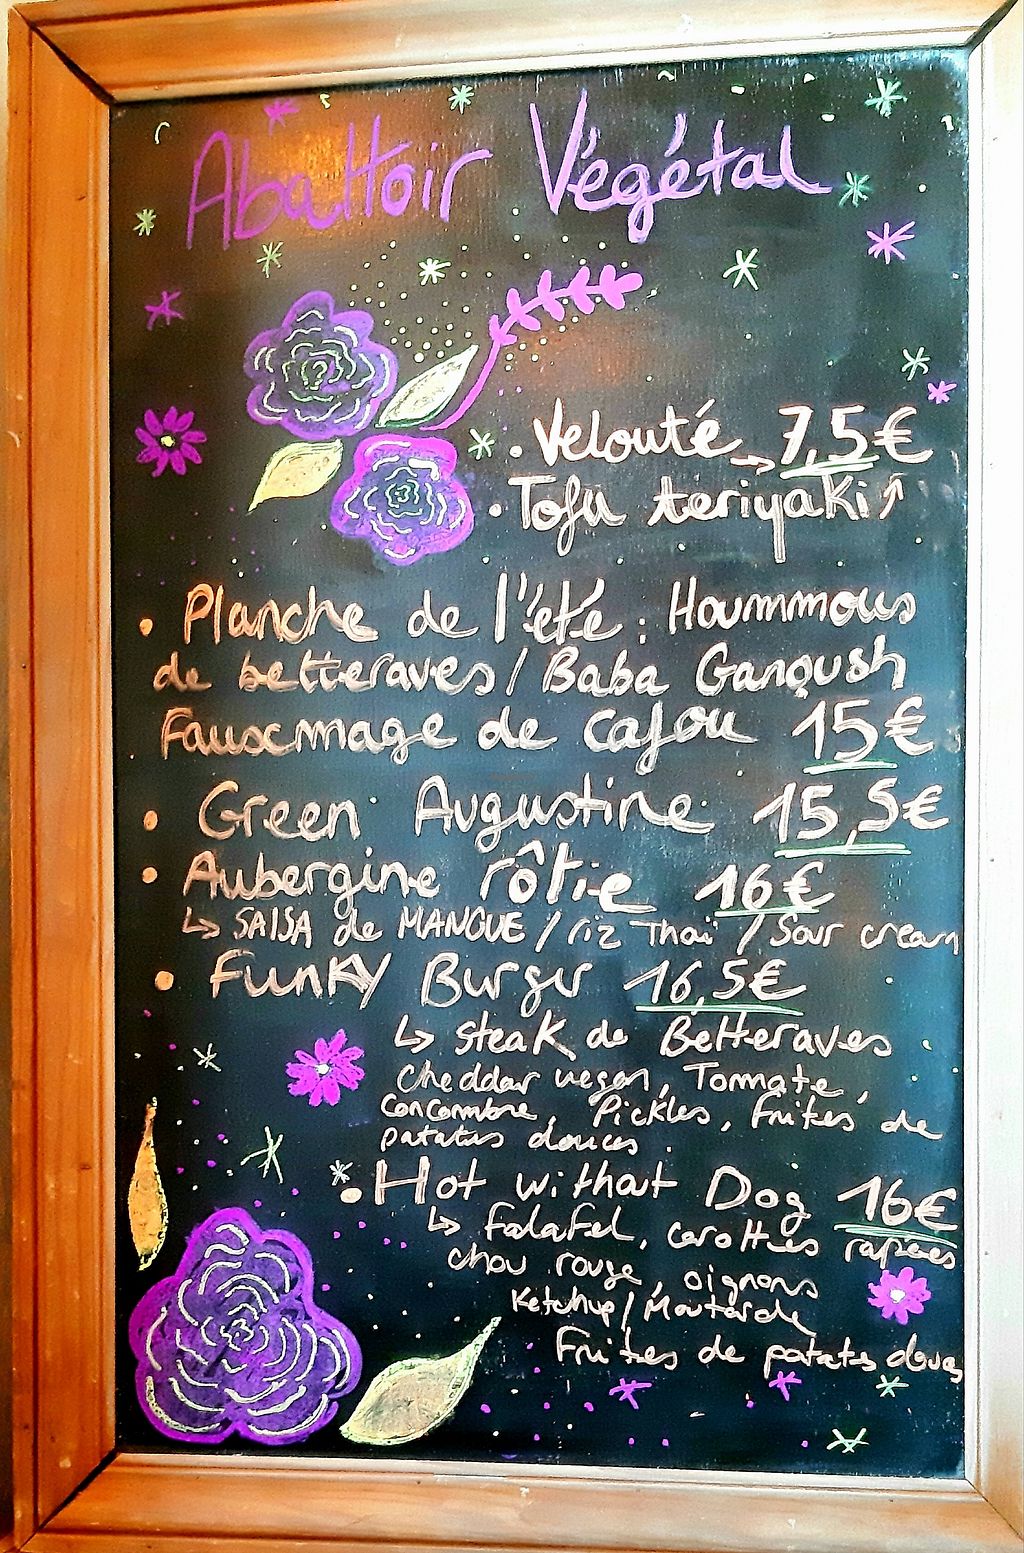 Abattoir Végétal
• Velouté → 7,5€
• Tofu teriyaki ↑
• Planche de l'été : Hoummous
de betteraves / Baba Ganoush
Fauxmage de cajou 15€
• Green Augustine 15,5€
• Aubergine rôtie 16€
↳ SALSA de MANGUE / riz Thaï / Sour cream
• Funky Burger 16,5€
↳ steak de Betteraves
cheddar vegan, Tomate,
Concombre, Pickles, Frites de
patates douces.
• Hot without Dog 16€
↳ Falafel, carottes rapées
chou rouge, oignons
Ketchup / Moutarde
Frites de patates douces